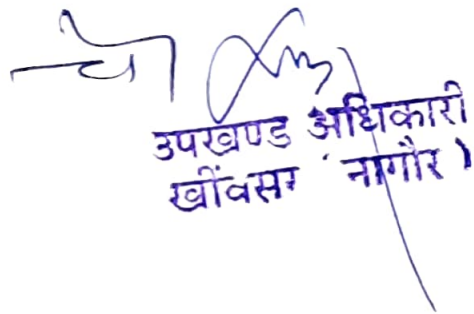 उपखण्ड अधिकारी
खींवसर नागौर )